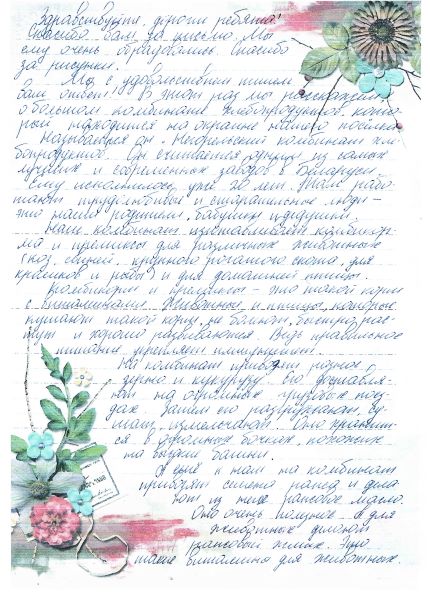 Здравствуйте, дороги ребята!
Спасибо вам за письмо. Мы
ему очень обрадовались. Спасибо
за рисунки.
Мы с удовольствием пишем
вам ответ! В этот раз мы расскажем
о большом комбинате хлебопродуктов, кото-
рый находится на окраине нашего посёлка.
Называется он „Негорельский комбинат хле-
бопродуктов. Он считается одним из самых
лучших и современных заводов в Беларуси.
Ему исполнилось уже 20 лет. Там рабо-
тают трудолюбивые и старательные люди –
это наши родители, бабушки и дедушки.
Наш комбинат изготавливает комбикор-
ма и премиксы для различных животных
(коз, свиней, крупного рогатого скота, для
кроликов и рыбы) и для домашней птицы.
Комбикорм и премиксы – это такой корм
с витаминами. Животные и птицы, которые
кушают такой корм, не болеют, быстро рас-
тут и хорошо развиваются. Ведь правильное
питание укрепляет иммунитет.
На комбинат привозят разное
зерно и кукурузу. Его доставля-
ют на огромных грузовых поез-
дах. Затем его разгружают, су-
шат, измельчают. Оно хранит-
ся в огромных бочках, похожих
на высокие башни.
А ещё к нам на комбинат
привозят семена рапса и дела-
ют из них рапсовое масло.
Оно очень полезное. А для
животных делают
рапсовый жмых. Это
такие витамины для животных.